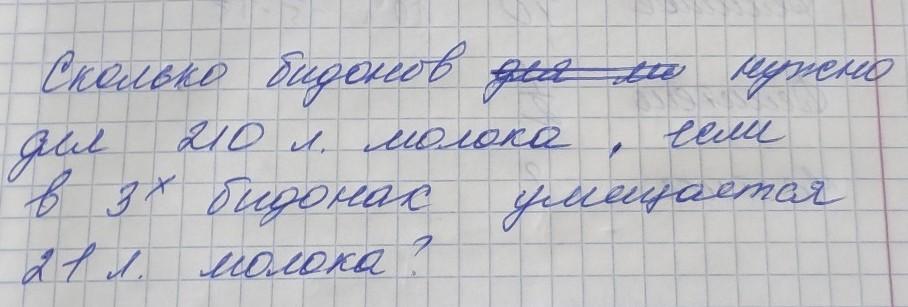 Сколько бидонов нужно
для 210 л. молока, если
в 3х бидонах умещается
21 л. молока?